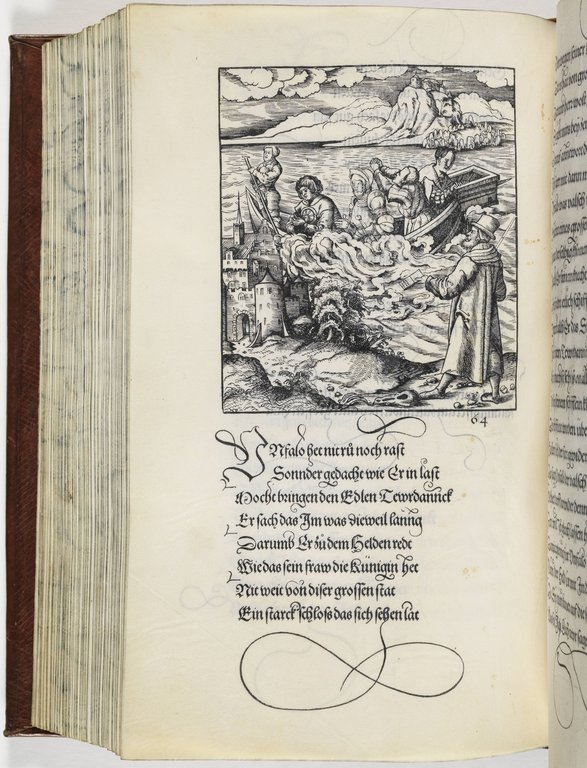 64
Unfalo het nit rů noch rast
Sonnder gedacht wie Er in last
Mocht bringen den Edlen Tewrdannck
Er sach das Im was dieweil lanng
Darumb Er zů dem Helden redt
Wie das sein fraw die Künigin het
Nit weit von diser grossen stat
Ein starck schloß das sich sehen lat